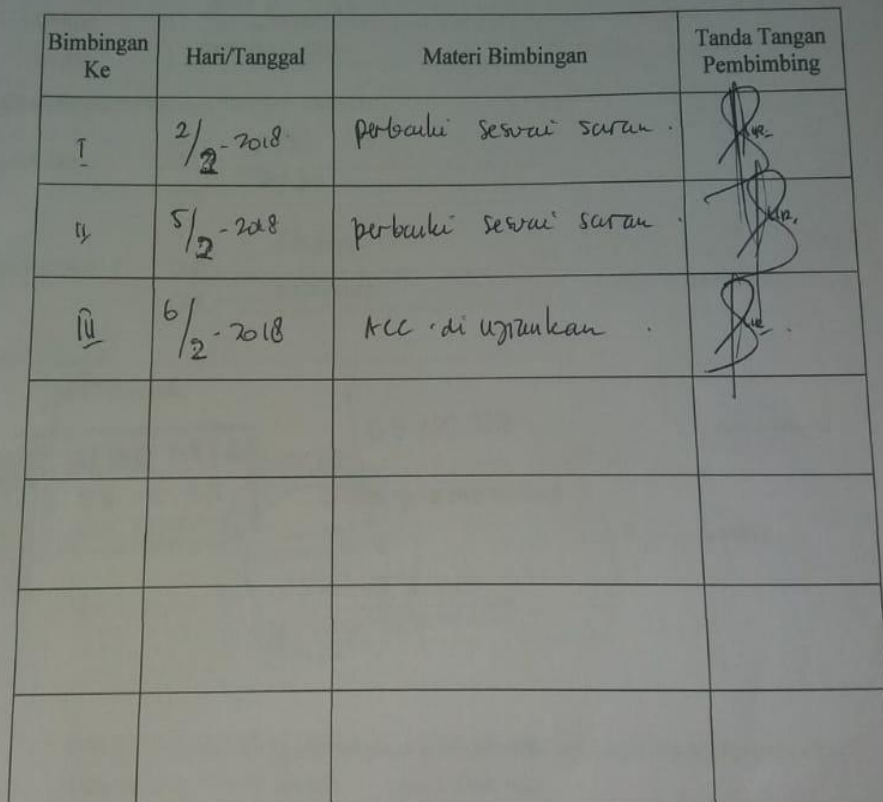 Bimbingan Ke Hari/Tanggal Materi Bimbingan Tanda Tangan Pembimbing
I 2/2-2018. perbaiki sesuai saran.
II 5/2-2018 perbaiki sesuai saran.
III 6/2-2018 ACC di ujiankan.